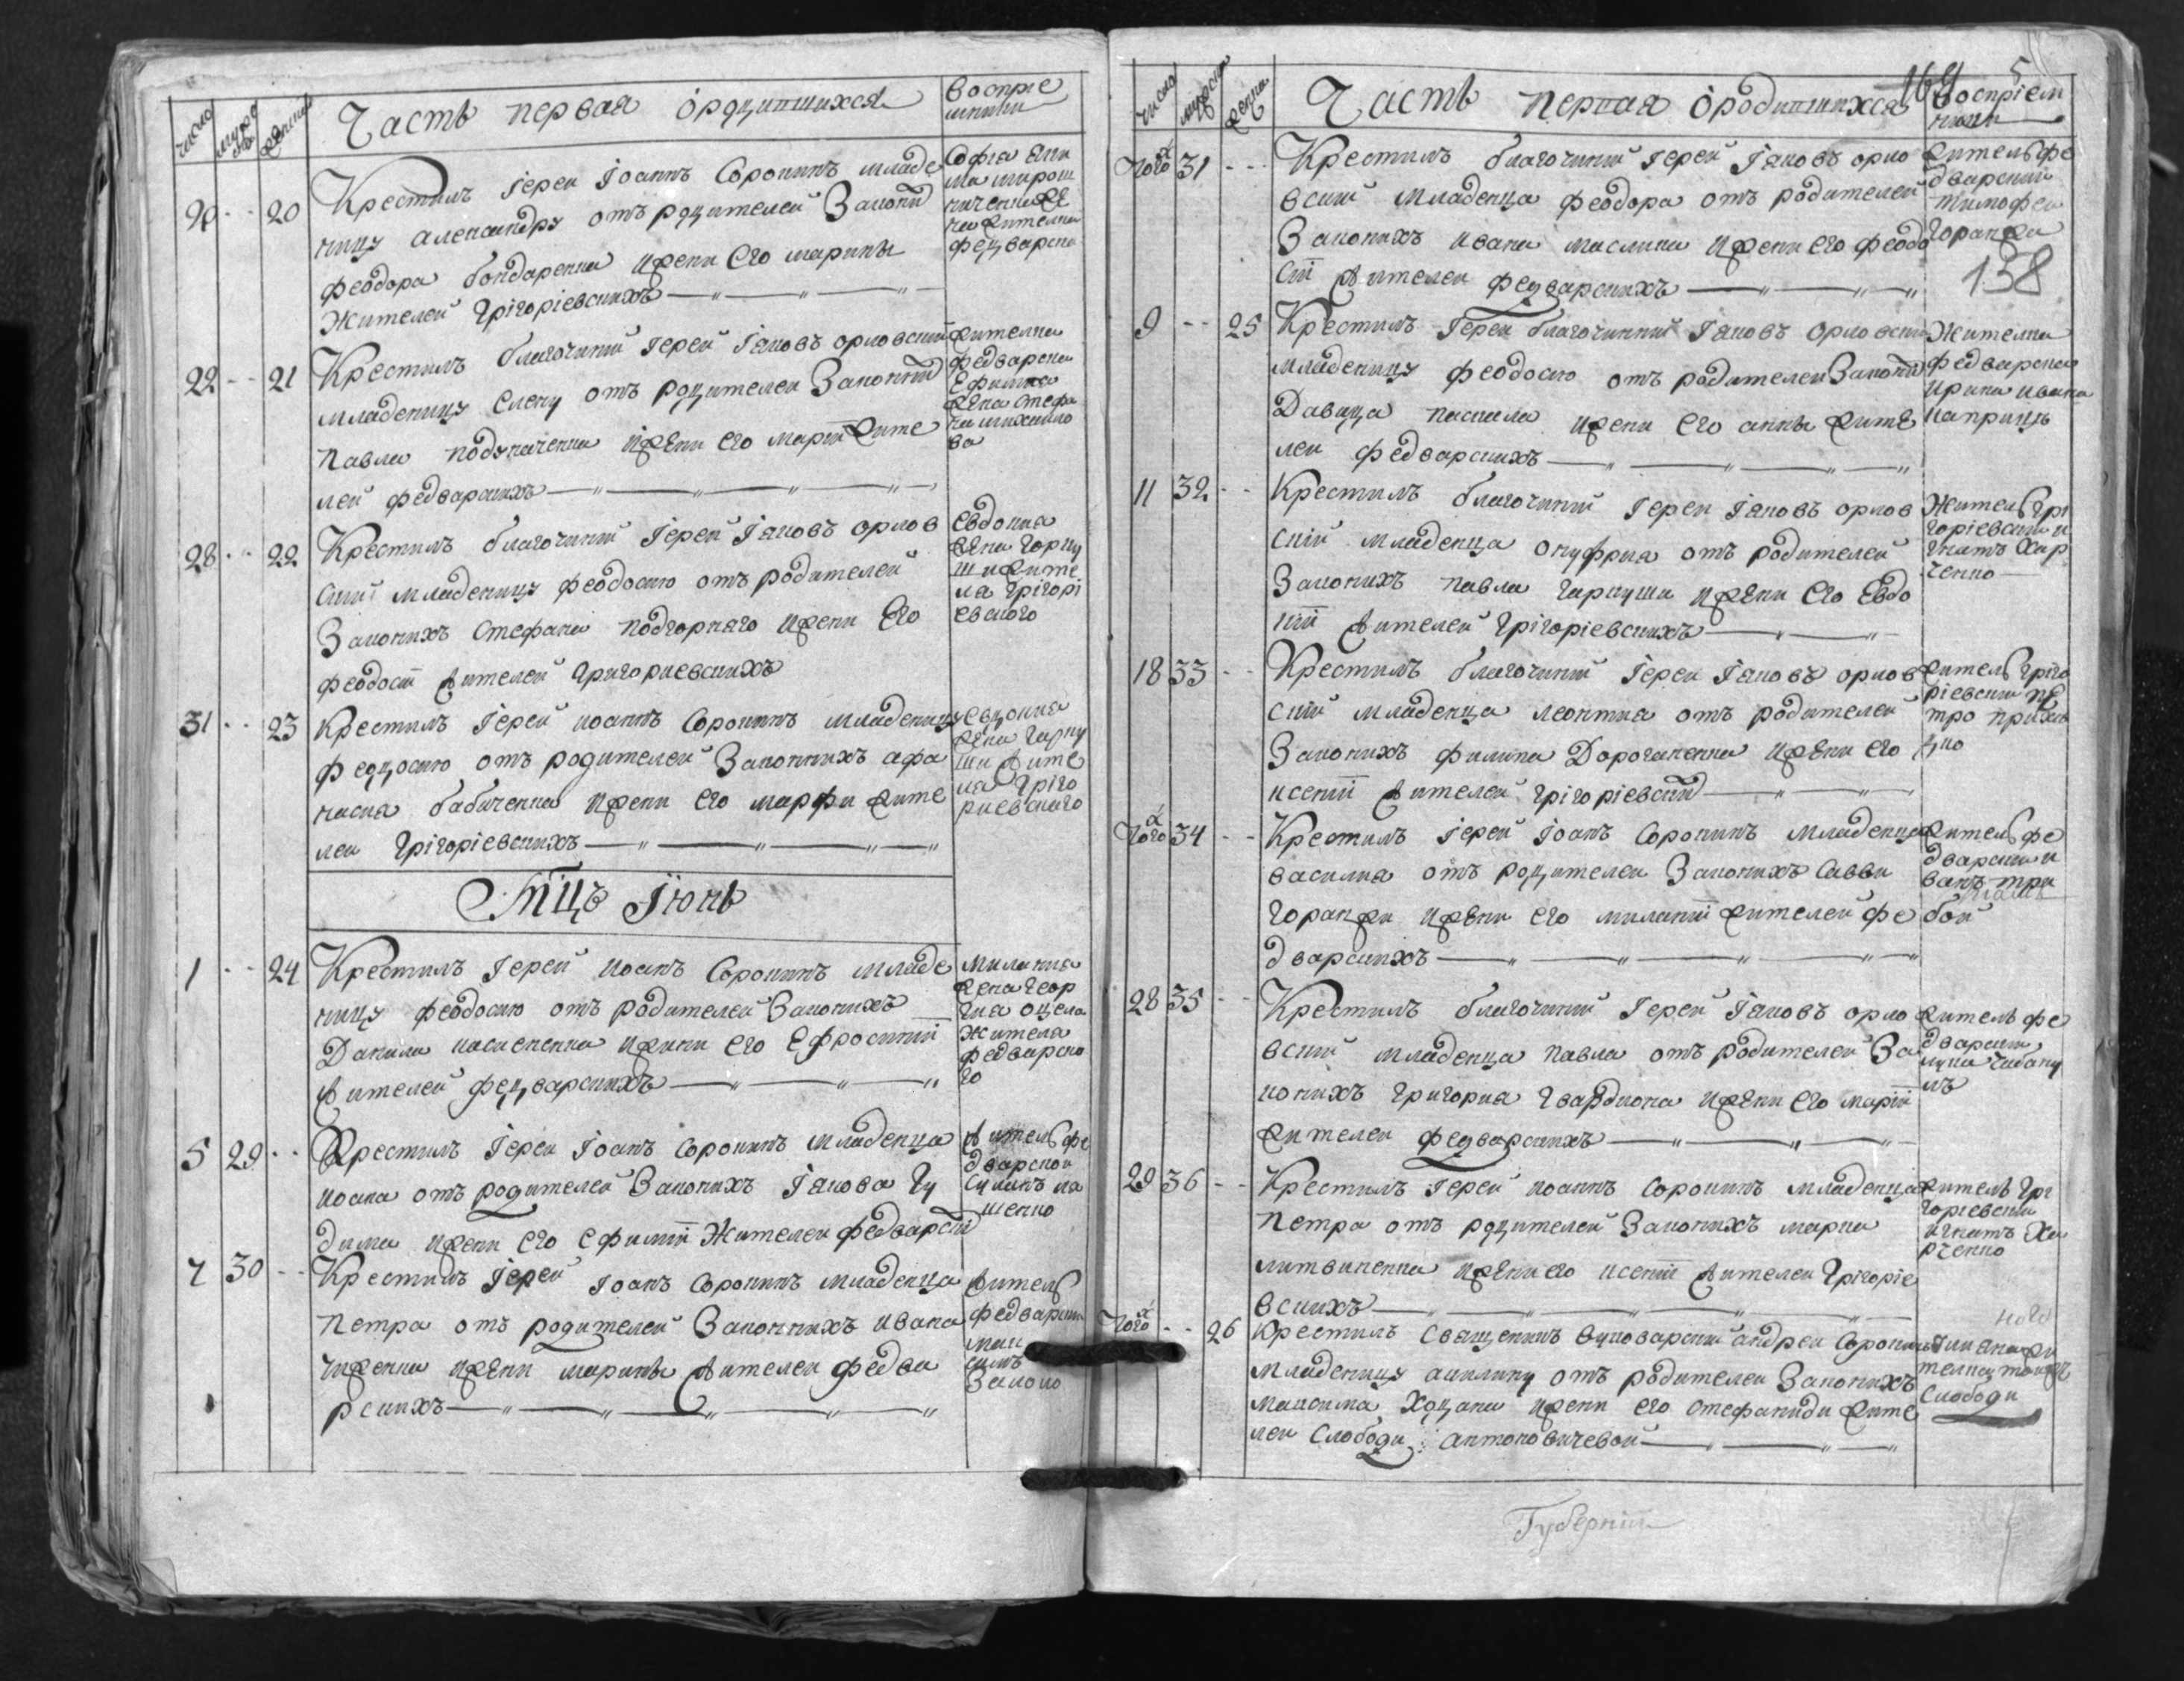 число мужеска женска Часть первая ородившихся Восприемники
20 -- 20 Крестилъ Іерей Іоаннъ Соронинъ младе
ницу александру отъ родителей Законн
феодора бондаренка ижени Его марины
Жителей Григоріевскихъ
Софиа
жителька
федварска
22 -- 21 Крестилъ благочиній Іерей Іаковъ орловскій
младеницу Елену отъ родителей Законній
Павла подзначенка ижени Его маріи жите
лей федварскихъ
жителька
федварска
Ефимиа
жена стефа
на михаило
ва
28 -- 22 Крестилъ благочиній Іерей Іаковъ орлов
скій младеницу феодосию отъ родителей
Законихъ стефана подгорнаго ижени Его
феодосіи жителей Григориевскихъ
Евдокиа
жена гарку
ши жите
ла Грігорі
евского
31 -- 23 Крестилъ Іерей иоаннъ Соронинъ младеницу
феодосию отъ родителей Законнихъ афа
насиа бабиченка ижени Его марфи жите
лей Грігоріевскихъ
Евдокиа
жена гарку
ши жите
ла Гріго
риевского
Мцъ Июнь
1 -- 24 Крестилъ Іерей иоанъ Соронинъ младе
ницу феодосию отъ родителей Законихъ
Данила ижени Его Ефросиніи
жителей федварскихъ
миланиа
жена геор
гиа
жителя
федварско
го
5 29 -- Крестилъ Іерей Іоанъ Соронинъ младенца
иоана отъ родителей Законихъ Іакова Гу
дима ижени Его Ефиміи Жителей федварскій
Житель фе
дварской
7 30 -- Крестилъ Іерей Іоанъ Соронинъ младенца
петра отъ родителей Законнихъ ивана
ижени марины жителей федва
рскихъ
житель
федварскій
число мужеска женска Часть первая ородившихся Восприемники
164 5
138
Того 31 -- Крестилъ благочиній Іерей Іаковъ орло
вский младенца феодора отъ родителей
Законихъ ивана маслина ижени Его феодо
сіи жителей федварскихъ
житель фе
дварский
тимофей
горанжа
9 -- 25 Крестилъ Іерей благочиній Іаковъ Орловский
младеницу феодосию отъ родителей Законній
Давида паскала ижени Его анны жите
лей федварскихъ
Жителка
федварска
ирина ивана
каприца
11 32 -- Крестилъ благочиній Іерей Іаковъ орлов
скій младенца онуфриа отъ родителей
Законихъ павла гаркуши ижени Его Евдо
кіи жителей Григоріевскихъ
Житель Гри
горіевский и
гнатъ Хар
ченко
18 33 -- Крестилъ благочиній Іерей Іаковъ орлов
скій младенца леонтиа отъ родителей
Законихъ филипа Дороганенка ижени его
ксеніи жителей Грігоріевскій
житель Гріго
ріевский пе
тро приход
ко
Того 34 -- Крестилъ Іерей Іоанъ Соронинъ младенца
василиа отъ родителей Законихъ Савви
горанжи ижени Его миланіи жителей фе
дварскихъ
житель фе
дварский и
ванъ
28 35 -- Крестилъ благочиній Іерей Іаковъ орло
вский младенца павла отъ родителей За
конихъ григориа гвардиона ижени Его маріи
жителей федварскихъ
житель фе
дварский
лука
29 36 -- Крестилъ Іерей иоаннъ Соронинъ младенца
Петра отъ родителей Законихъ марка
литвиненка ижени его ксеніи жителей Грігоріе
вскихъ
житель Гри
горіевский
игнатъ Ха
рченко
Того -- 26 Крестилъ священикъ андрей Соронинъ
младеницу акилину отъ родителей Законихъ
максима ходака ижени Его стефаниди жите
лей слободи антоновичевой
Слободи
Губерніи